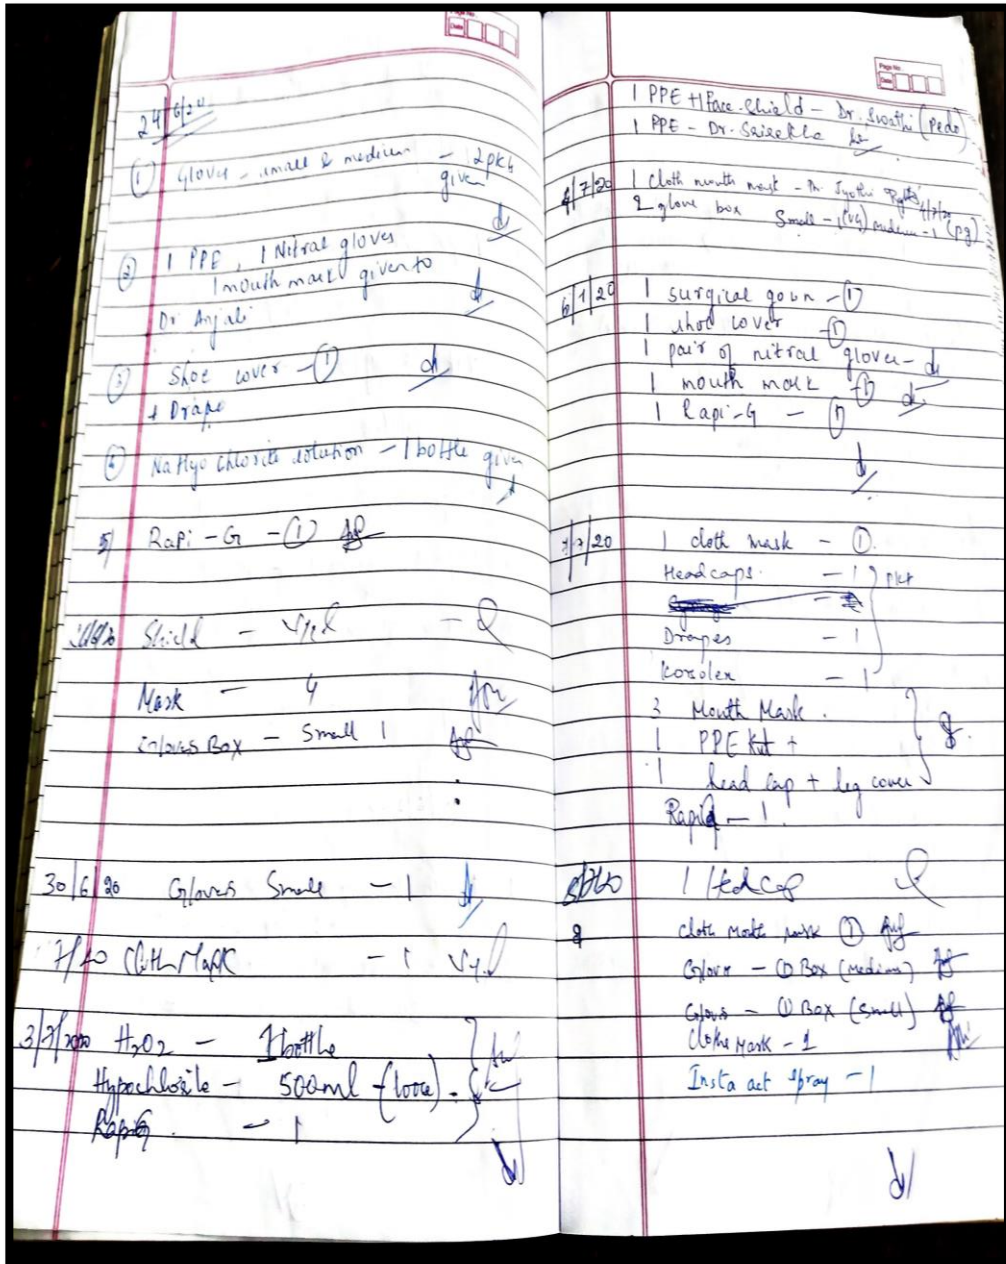 24/6/20
① Gloves - small & medium - 2 pkts
given
② 1 PPE, 1 Nitral gloves
1 mouth mask given to
Dr Anjali
③ Shoe cover - ①
+ Drape
④ Na Hypo chlorite solution - 1 bottle given
5) Rapi-G - ①
Shield -
Mask - 4
Gloves Box - Small 1
30/6/20 Gloves Small - 1
7/20 Cloth Mask - 1
3/7/2020 H2O2 - 1 bottle
Hypochlorite - 500ml - (loose).
RapiG. - 1
Page No
Date
1 PPE + 1 Face-Shield - Dr. Swathi (Pedo)
1 PPE - Dr. Sairekha
4/7/20 1 cloth mouth mask - Dr. Jyothi
2 glove box Small - 1 (UG) medium - 1 (PG)
6/7/20 1 surgical gown - ①
1 shoe cover - ①
1 pair of nitral glove -
1 mouth mask - ①
1 Rapi-G - ①
7/7/20 1 cloth mask - ①.
Headcaps. - 1 pkt
Drapes - 1
Korsolex - 1
3 Mouth Mask.
1 PPE Kit +
1 head cap + leg cover
Rapid - 1.
1 Hed Cap
cloth Mouth mask ①
Glove - ① Box (Medium)
Gloves - ① Box (Small)
Clothe Mask - 1
Insta act spray - 1